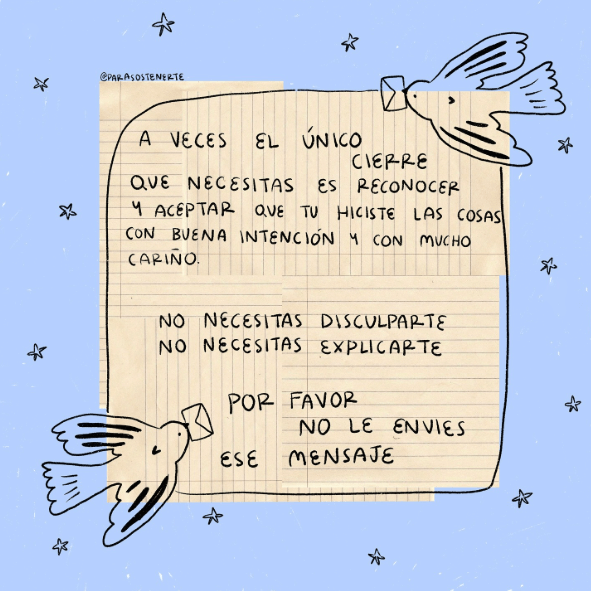 @PARASOSTENERTE
A VECES EL ÚNICO
CIERRE
QUE NECESITAS ES RECONOCER
Y ACEPTAR QUE TU HICISTE LAS COSAS
CON BUENA INTENCIÓN Y CON MUCHO
CARIÑO.
NO NECESITAS DISCULPARTE
NO NECESITAS EXPLICARTE
POR FAVOR
NO LE ENVIES
ESE MENSAJE